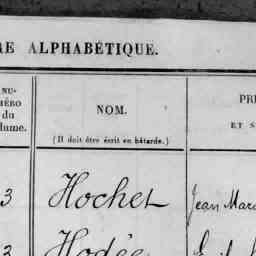 RE ALPHABÉTIQUE.
NU-
MÉRO
du
lume.
NOM.
(Il doit être écrit en bâtarde.)
PRÉ
ET S
3 Hochet Jean Marc
3 Hodée